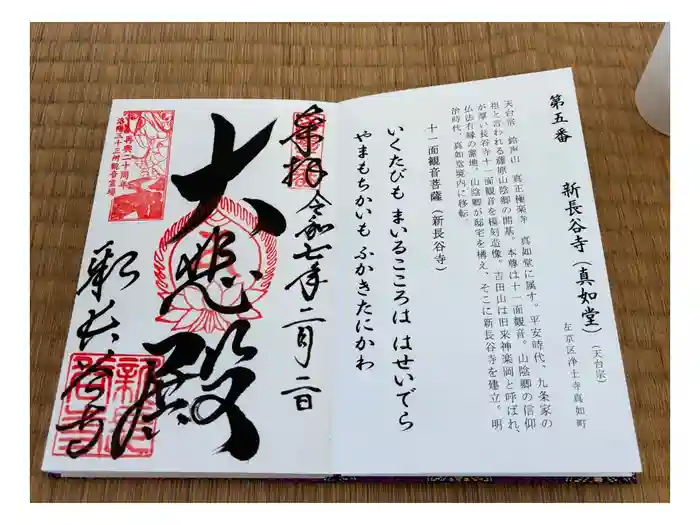 第五番
新長谷寺（真如堂）
（天台宗）
左京区浄土寺真如町
天台宗 鈴声山 真正極楽寺 真如堂に属す。平安時代、九条家の
祖と言われる藤原山陰卿の開基。本尊は十一面観音。山陰卿の信仰
が厚い長谷寺十一面観音を模刻造像。吉田山は旧来神楽岡と呼ばれ、
仏法有縁の霊地。山陰卿が邸宅を構え、そこに新長谷寺を建立。明
治時代、真如堂境内に移転。
十一面観音菩薩（新長谷寺）
いくたびも まいるこころは はせいでら
やまもちかいも ふかきたにかわ
奉拝 令和七年二月二日
大悲殿
新長谷寺
再興二十周年
洛陽三十三所観音霊場